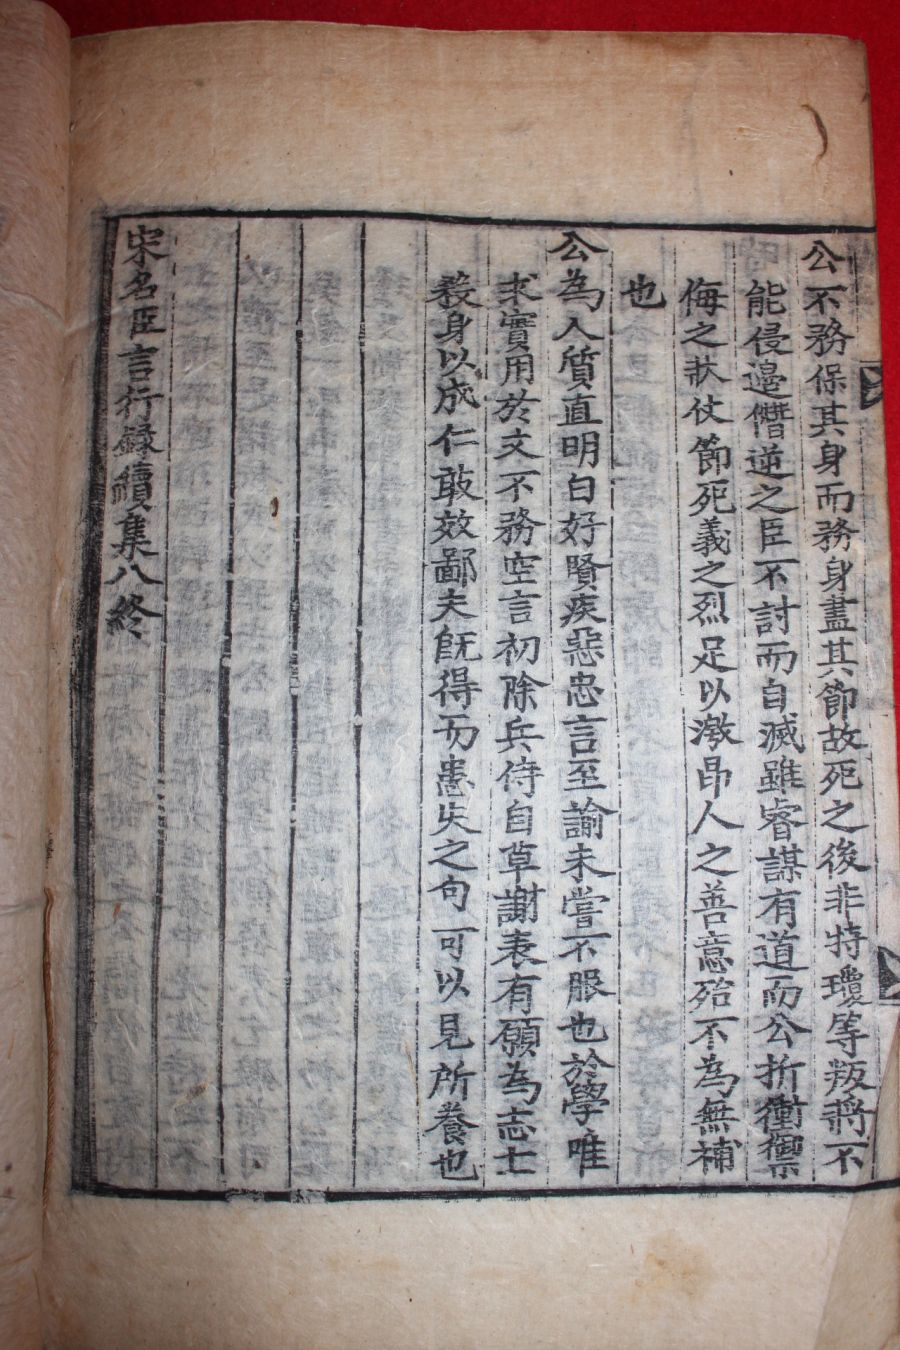 公不務保其身而務身盡其節故死之後非特瓊等叛將不
能侵邊僭逆之臣不討而自滅雖睿謀有道而公折衝禦
侮之狀仗節死義之烈足以激昂人之善意殆不為無補
也
公為人質直明白好賢疾惡忠言至論未嘗不服也於學唯
求實用於文不務空言初除兵侍自草謝表有願為志士
殺身以成仁敢效鄙夫旣得而患失之句可以見所養也
宋名臣言行録續集八終